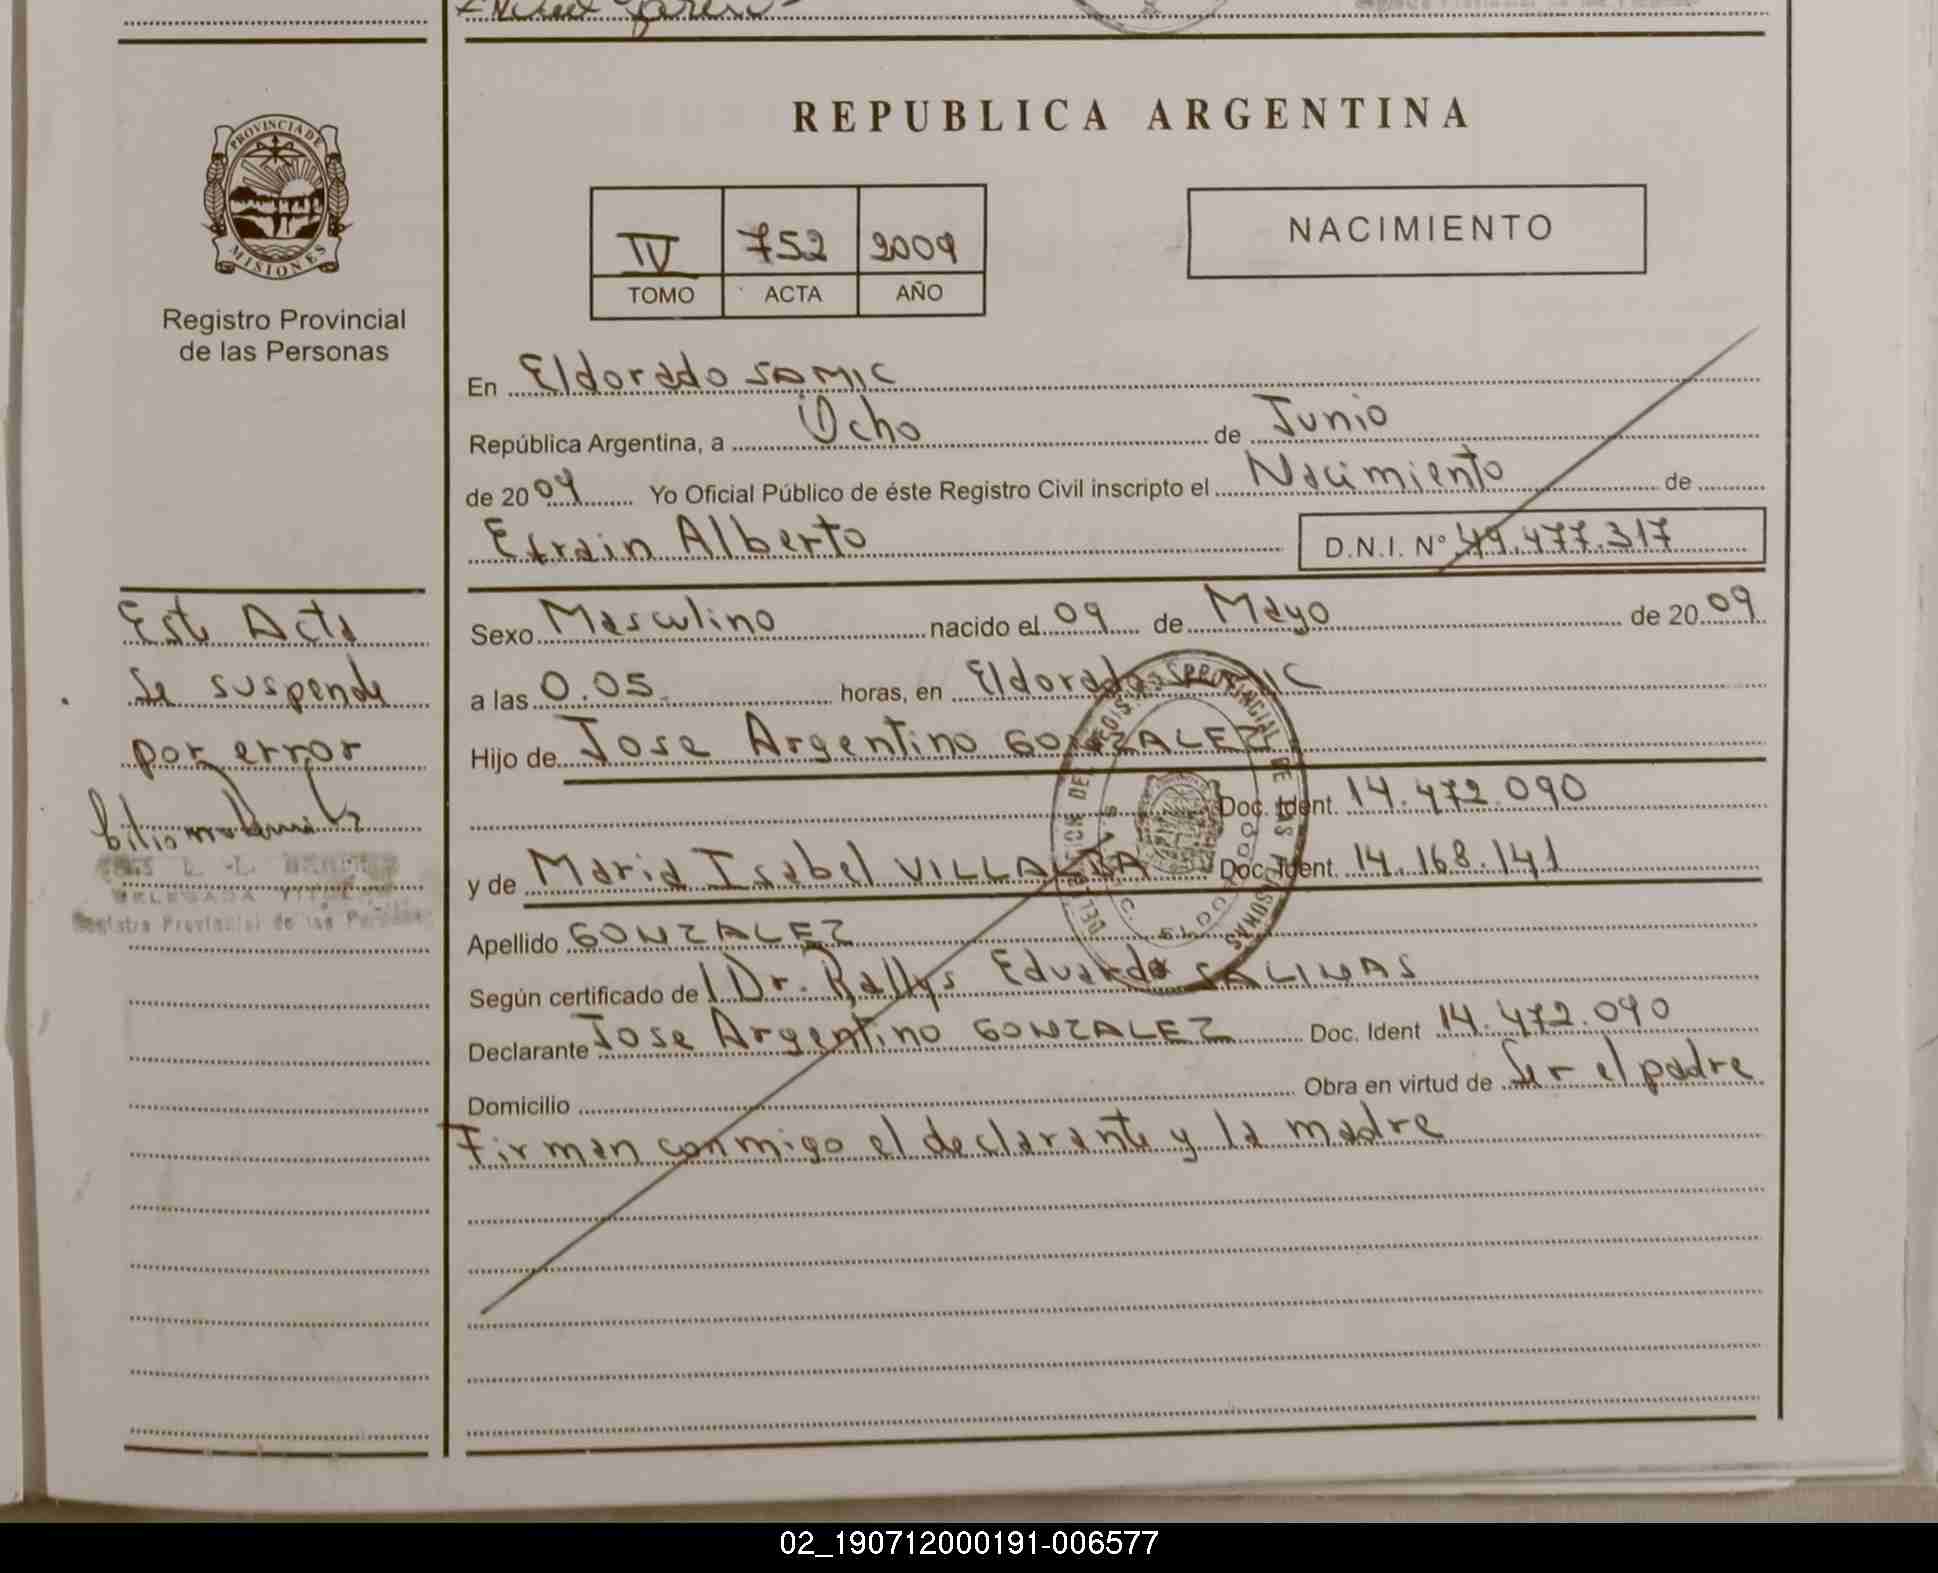 PROVINCIA DE
MISIONES
Registro Provincial
de las Personas
REPUBLICA ARGENTINA
IV 752 2009
TOMO ACTA AÑO
NACIMIENTO
En Eldorado SAMIC
República Argentina, a Ocho de Junio
de 2009 Yo Oficial Público de éste Registro Civil inscripto el Nacimiento de
Efrain Alberto D.N.I. Nº 49.477.317
Sexo Masculino nacido el 09 de Mayo de 2009
a las 0.05 horas, en Eldorado
Hijo de Jose Argentino GONZALEZ
Doc. Ident. 14.472.090
y de Maria Isabel VILLALBA Doc. Ident. 14.168.141
Apellido GONZALEZ
Según certificado de Dr. Rallys Eduardo SALINAS
Declarante Jose Argentino GONZALEZ Doc. Ident 14.472.090
Domicilio Obra en virtud de Ser el padre
Firman conmigo el declarante y la madre
Este Acta
se suspende
por error
Registro Provincial de las Personas
02_190712000191-006577